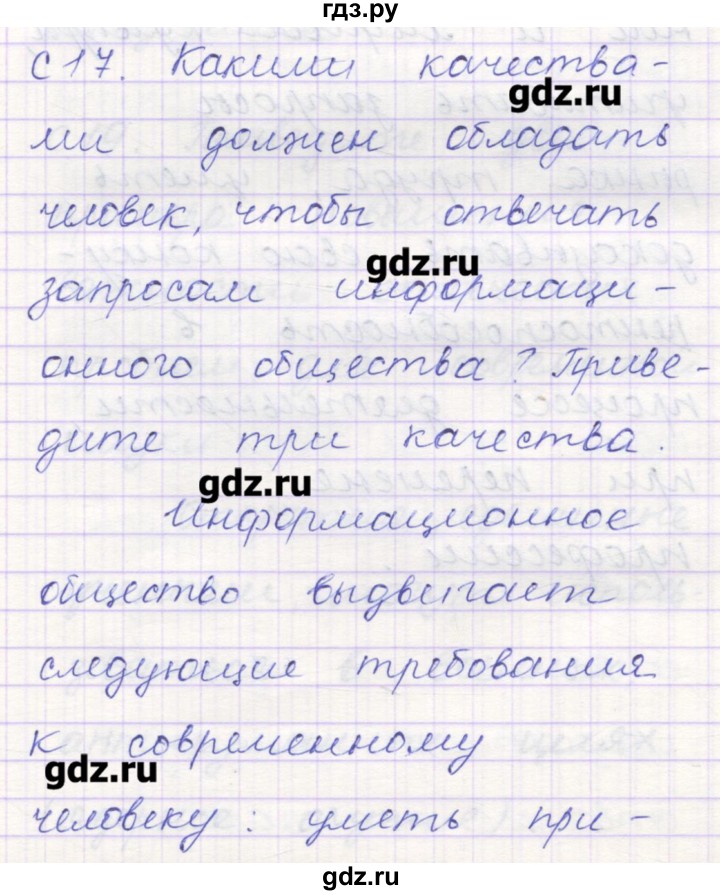 гдз.ру
С 17. Какими качества-
gdz.ru
ми должен обладать
человек, чтобы отвечать
gdz.ru
запросам информаци-
онного общества? Приве-
дите три качества.
gdz.ru
Информационное
общество выдвигает
следующие требования
к современному
gdz.ru
человеку: уметь при-